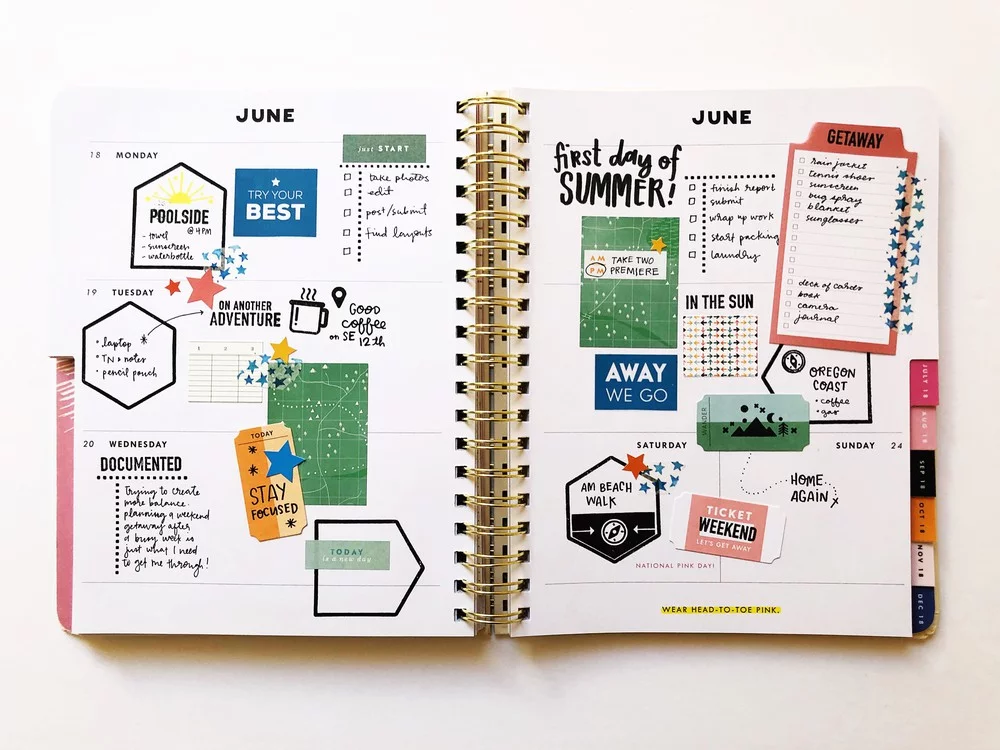 JUNE
18 MONDAY
POOLSIDE
@ 4PM
- towel
- sunscreen
- waterbottle
TRY YOUR
BEST
just START
take photos
edit
post/submit
find layouts
19 TUESDAY
• laptop
• TN + notes
• pencil pouch
ON ANOTHER
ADVENTURE
GOOD
coffee
on SE 12th
20 WEDNESDAY
DOCUMENTED
Trying to create
more balance.
planning a weekend
getaway after
a busy week is
just what I need
to get me through!
TODAY
STAY
FOCUSED
TODAY
is a new day
JUNE
first day of
SUMMER!
finish report
submit
wrap up work
start packing
laundry
GETAWAY
rain jacket
tennis shoes
sunscreen
bug spray
blanket
sunglasses
deck of cards
book
camera
journal
AM
PM
TAKE TWO
PREMIERE
IN THE SUN
AWAY
WE GO
OREGON
COAST
• coffee
• gas
WANDER
SATURDAY
SUNDAY 24
AM BEACH
WALK
HOME
AGAIN
TICKET
WEEKEND
LET'S GET AWAY
NATIONAL PINK DAY!
WEAR HEAD-TO-TOE PINK.
JULY 18
AUG 18
SEP 18
OCT 18
NOV 18
DEC 18